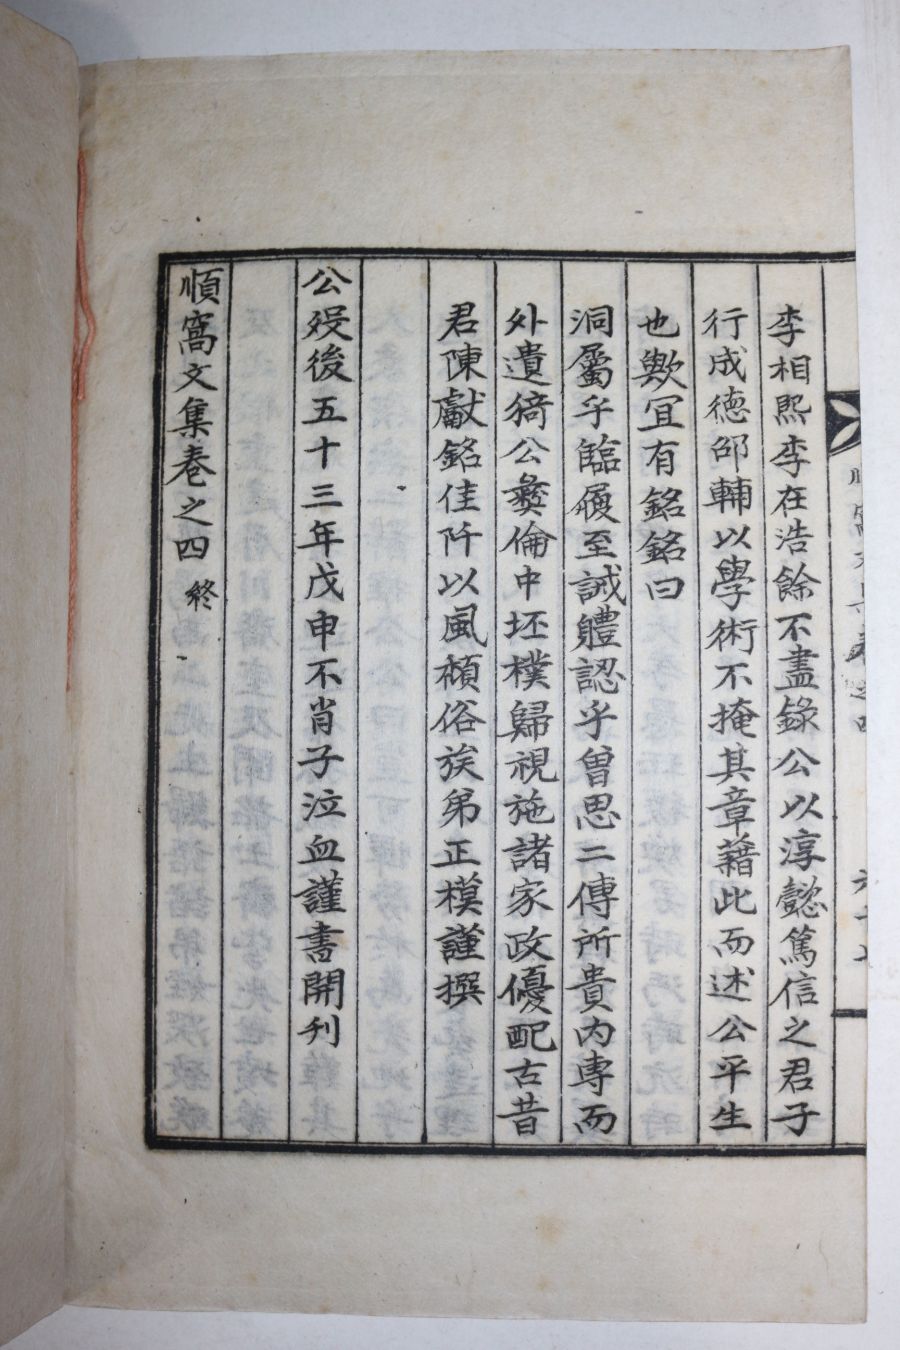 李相熙李在浩餘不盡錄公以淳懿篤信之君子
行成德邵輔以學術不掩其章藉此而述公平生
也歟冝有銘銘曰
洞屬乎臨履至誠軆認乎曾思二傳所貴內專而
外遺猗公彜倫中坯樸歸視施諸家政優配古昔
君陳獻銘佳阡以風頹俗族弟正模謹撰
公歿後五十三年戊申不肖子泣血謹書開刋
順窩文集卷之四 終